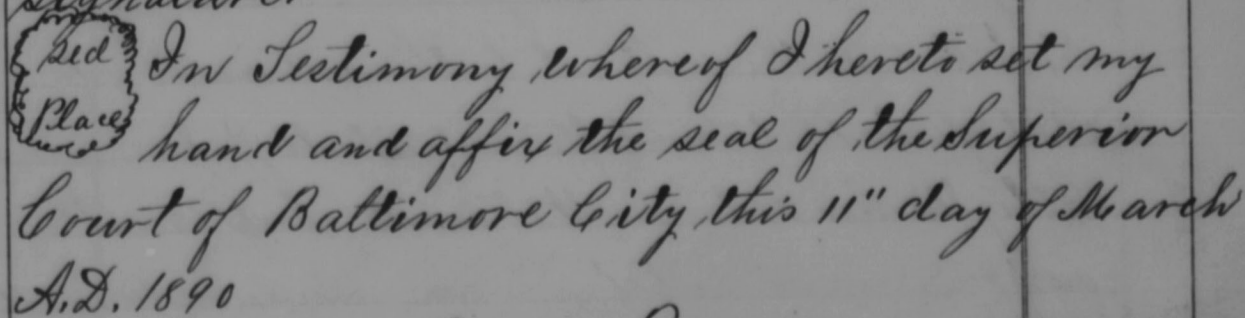 signature.
Seal
Place
In Testimony whereof I hereto set my
hand and affix the seal of the Superior
Court of Baltimore City, this 11" day of March
A.D. 1890